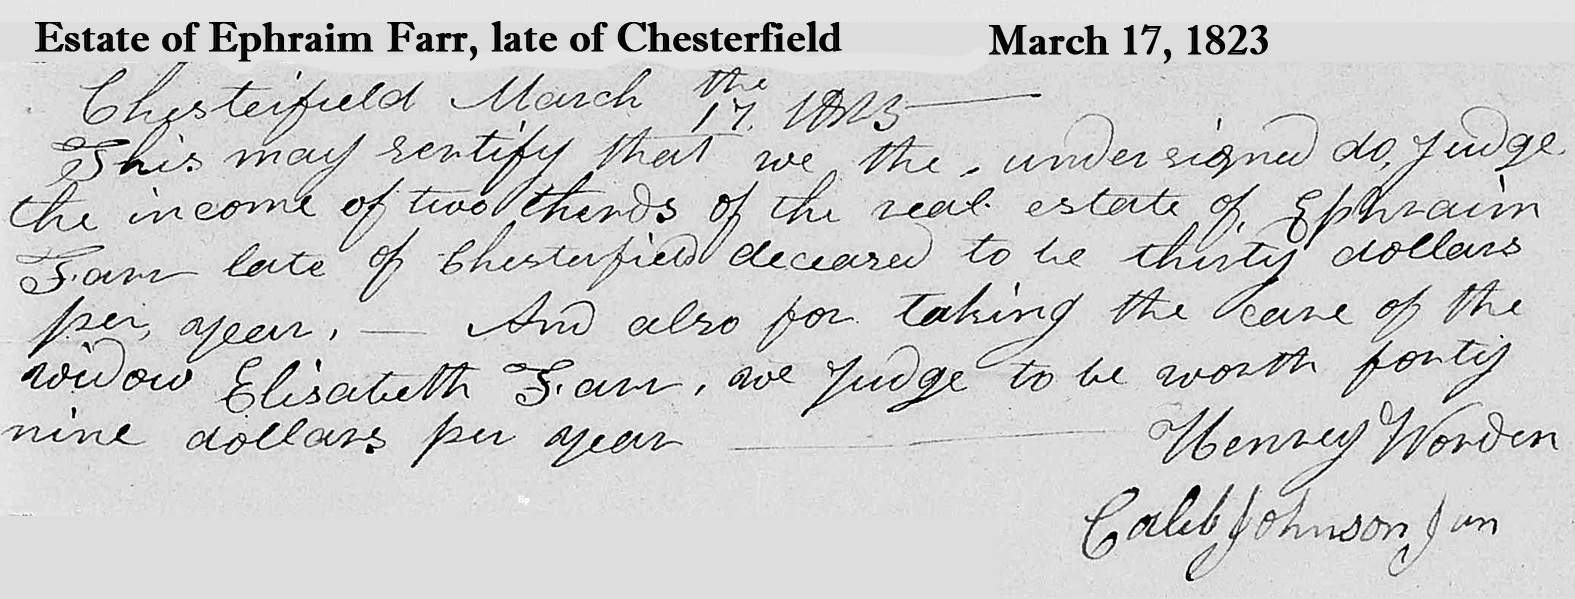 Estate of Ephraim Farr, late of Chesterfield March 17, 1823
Chesterfield March the 17. 1823
This may sentify that we the undersigned do, Judge
the income of two therds of the real estate of, Ephraim
Farr late of Chesterfield deceased to be thirty dollars
per, year, — And also for taking the care of the
widow Elisabeth Farr, we Judge to be worth forty
nine dollars per year
Henrey Worden
Caleb Johnson Jun